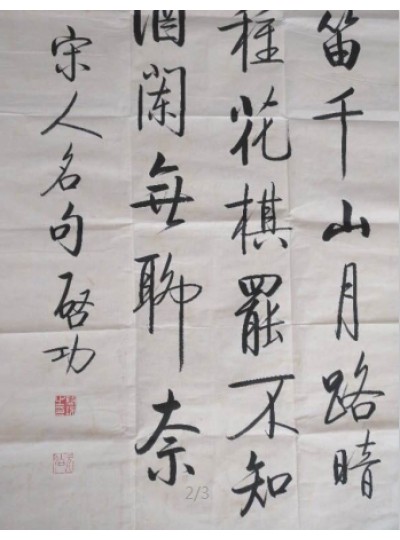 笛千山月路暗
種花棋罷不知
酒闌無聊奈
宋人名句啟功
2/3